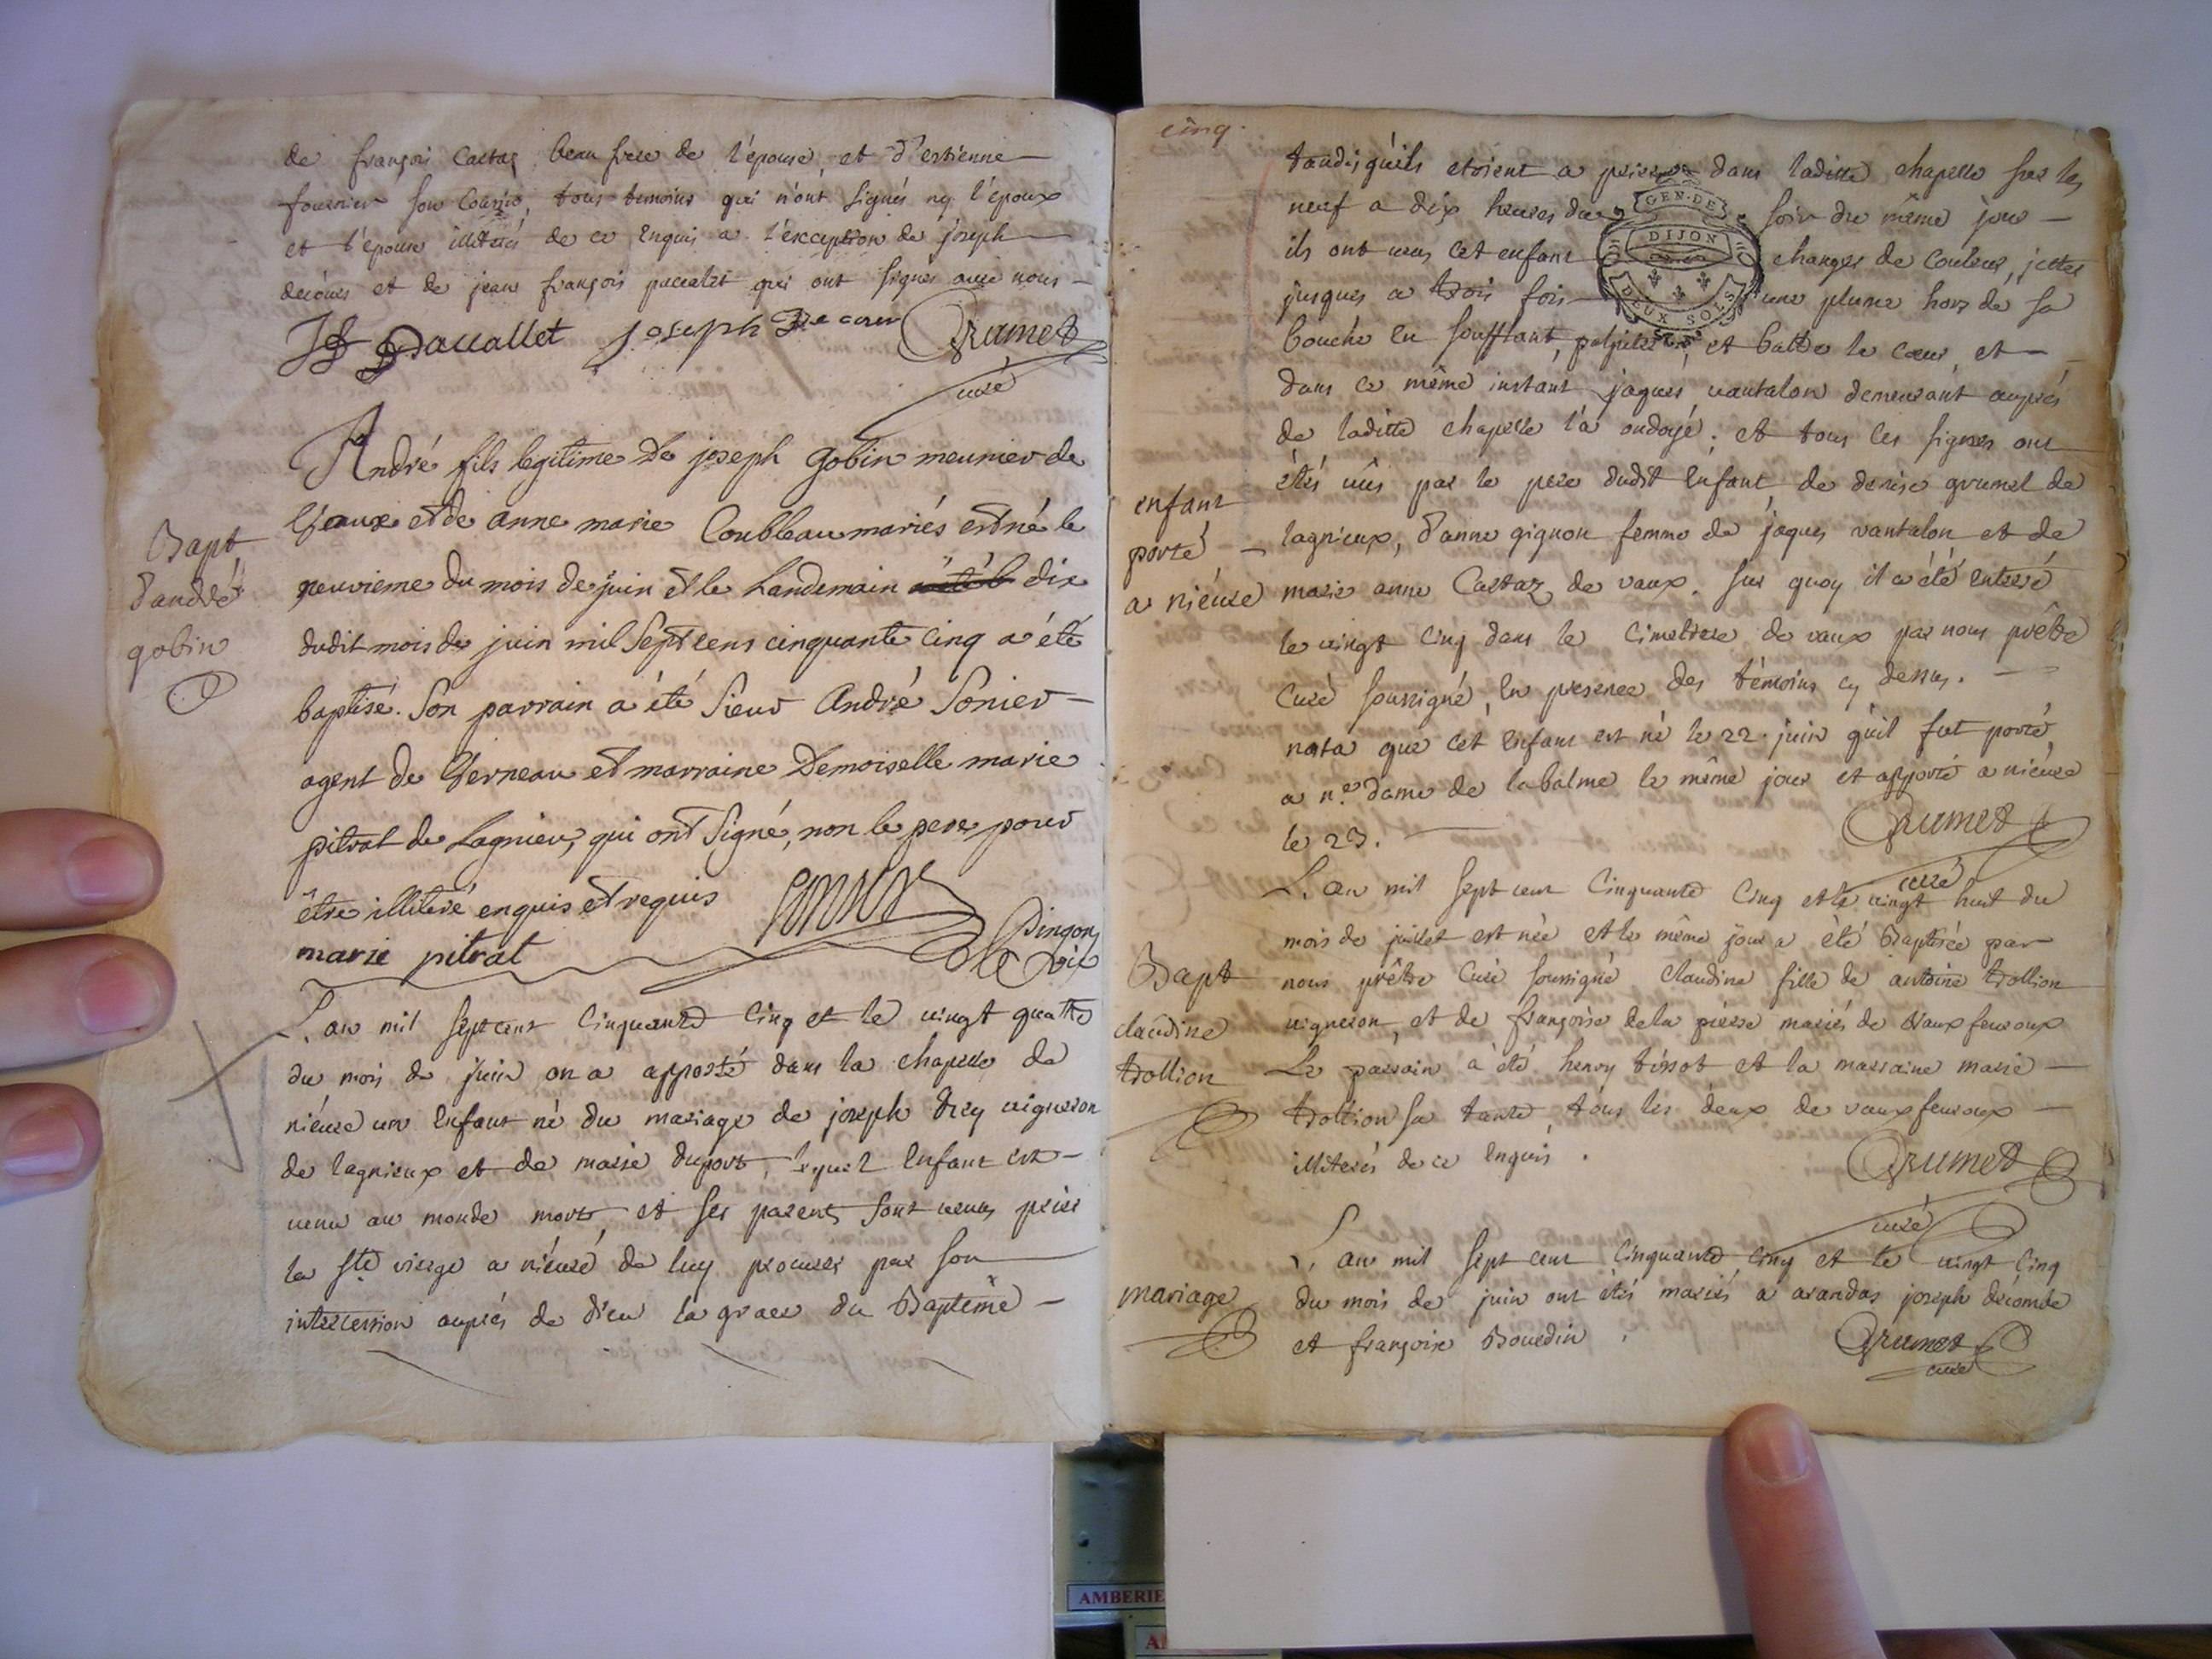 de françois Castaz beau frere de l'épouse, et d'estienne
fournier son Cousin, tous temoins qui n'ont signés ny l'époux
et l'épouse illiterés de ce Enquis a l'exception de joseph
et de jean françois paccalet qui ont signés avec nous
Jf Paccallet joseph Grumet
curé
André fils legitime De joseph Gobin meunier de
Vaux et de anne marie Coubleau mariés est né le
neuvieme du mois de juin et le Landemain dix
dudit mois de juin mil Sept cens cinquante cinq a été
baptisé. Son parrain a été Sieur André Sonier
agent de Verneau et marraine Demoiselle marie
pitrat de Lagnieu, qui ont signé, non le pere pour
être illiteré enquis et requis
marie pitrat
Dingon
Bapt
d'andré
gobin
L'an mil sept cent Cinquante Cinq et le vingt quatre
du mois de juin on a apporté dans la chapelle de
niéure un Enfant né du mariage de joseph Drey vigneron
de lagnieux et de marie duport, lequel Enfant est
venu au monde mort, et ses parents sont venus prier
la ste vierge a niéure de luy procurer par son
intercession auprés de dieu la grace du Baptême
cinq.
tandis qu'ils etoient a prier dans laditte chapelle sur les
neuf a dix heures du soir du même jour
ils ont vus cet enfant changer de couleur, jetter
jusques a trois fois une plume hors de sa
bouche en soufflant, palpiter, et battre le cœur, et
dans ce même instant jaques vantalon demeurant auprés
de laditte chapelle l'a ondoyé; et tous les signes ont
étés vûs par le pere dudit Enfant, de denise grumet de
lagnieux, d'anne gignon femme de jaques vantalon et de
marie anne Castaz de vaux. sur quoy il a été Enterré
le vingt Cinq dans le Cimetiere de vaux par nous prêtre
Curé soussigné, En presence des témoins cy dessus.
nota que cet Enfant est né le 22 juin qu'il fut porté
a n.e dame de labalme le même jour et apporté a niéure
le 23.
Grumet
curé
enfant
porté
a niéure
L'an mil sept cent Cinquante Cinq et le vingt huit du
mois de juillet est née et le même jour a été Baptisée par
nous prêtre Curé soussigné claudine fille de antoine trollion
vigneron, et de françoise dela pierre mariés de Vaux fevroux
Le parrain a été henry tissot et la marraine marie
trollion sa tante, tous les deux de vaux fevroux
illiterés de ce Enquis.
Grumet
curé
Bapt
claudine
trollion
L'an mil sept cent Cinquante Cinq et le vingt Cinq
du mois de juin ont étés mariés a arandas joseph décombe
et françoise Bourdin.
Grumet
curé
mariage
GEN·DE
DIJON
DEUX SOLS
AMBERIE